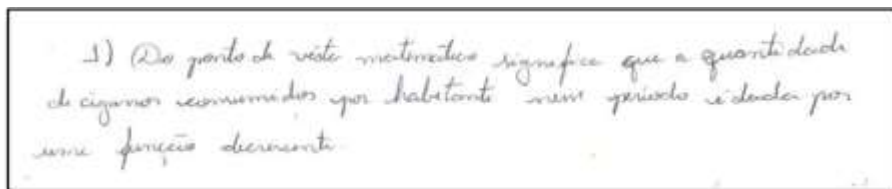 1) Do ponto de vista matemático significa que a quantidade
de cigarros consumidos por habitante num período é dada por
uma função decrescente.